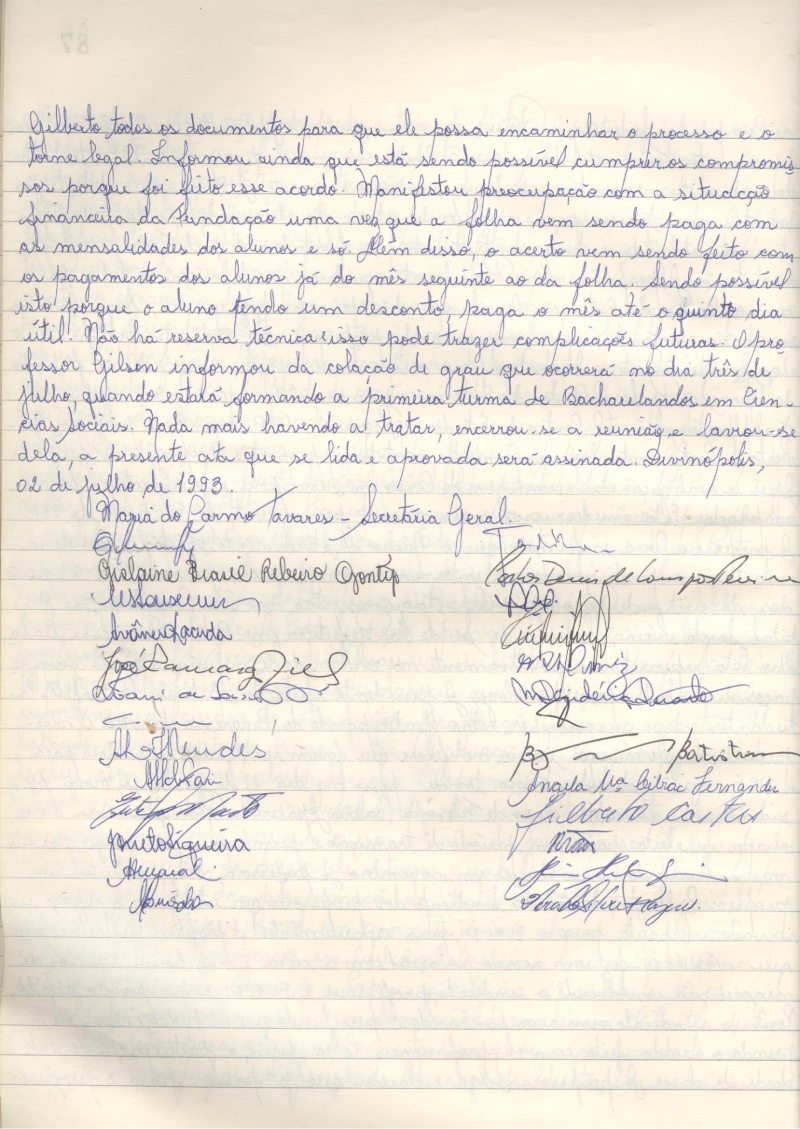 Gilberto todos os documentos para que ele possa encaminhar o processo e o
torne legal. Informou ainda que está sendo possível cumprir os compromis
sos porque foi feito esse acordo. Manifestou preocupação com a situação
financeira da Fundação uma vez que a folha vem sendo paga com
as mensalidades dos alunos e só. Além disso, o acerto vem sendo feito com
os pagamentos dos alunos já do mês seguinte ao da folha. Sendo possível
isto porque o aluno tendo um desconto, paga o mês até o quinto dia
útil. Não há reserva técnica e isso pode trazer complicações futuras. O pro
fessor Gilson informou da colação de grau que ocorrerá no dia três de
julho, quando estará formando a primeira turma de Bacharelandos em Ciên-
cias Sociais. Nada mais havendo a tratar, encerrou-se a reunião, e lavrou-se
dela, a presente ata que se lida e aprovada será assinada. Divinópolis,
02 de julho de 1993.
Maria do Carmo Tavares - Secretária Geral.
Gislaine Ribeiro Gontijo
Carlos Denis de Campos Pereira
Ivâne Lacerda
José
Mendes
Batista
Angela Mª Fernandes
Gilberto Castro
Siqueira
Amaral